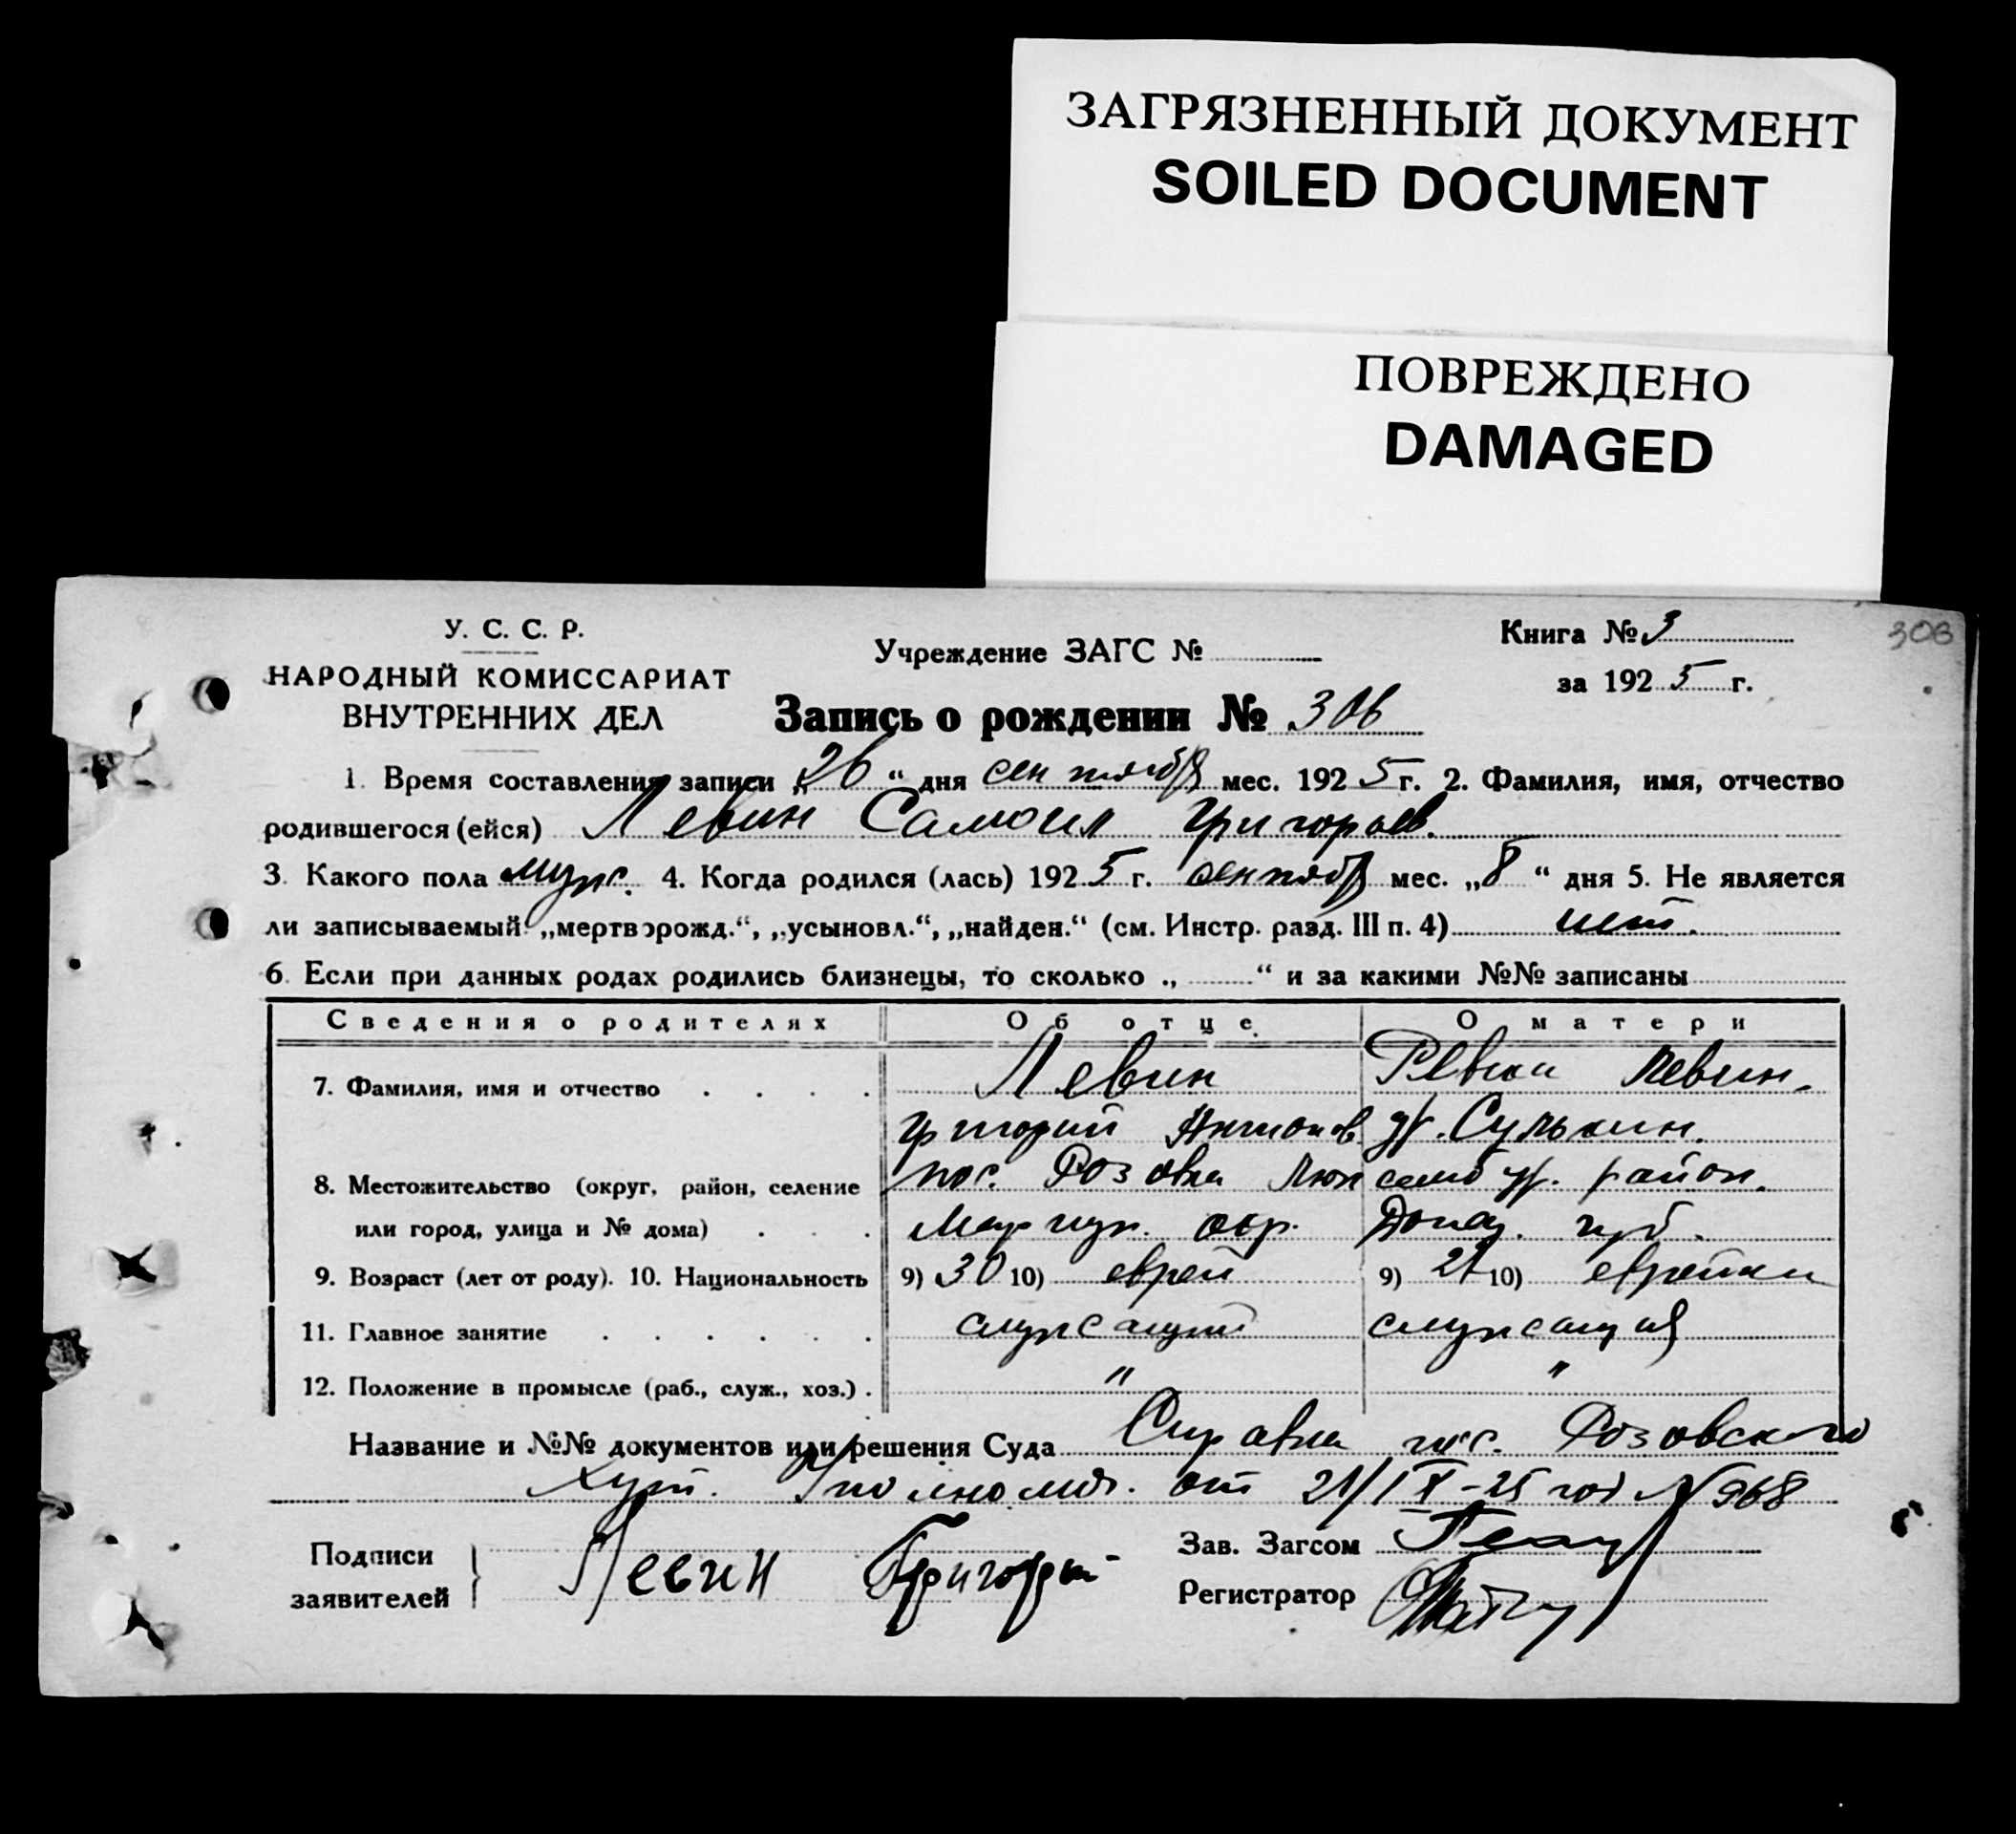 ЗАГРЯЗНЕННЫЙ ДОКУМЕНТ
SOILED DOCUMENT
ПОВРЕЖДЕНО
DAMAGED
У. С. С. Р.
НАРОДНЫЙ КОМИССАРИАТ
ВНУТРЕННИХ ДЕЛ
Учреждение ЗАГС №
Книга № 3
306
за 1925 г.
Запись о рождении № 306
1. Время составления записи „26“ дня сентября мес. 1925 г. 2. Фамилия, имя, отчество
родившегося (ейся) Левин Самоил Григорьев.
3. Какого пола мужс. 4. Когда родился (лась) 1925 г. сентября мес. „8“ дня 5. Не является
ли записываемый „мертворожд.“, „усыновл.“, „найден.“ (см. Инстр. разд. III п. 4) нет.
6. Если при данных родах родились близнецы, то сколько „ “ и за какими №№ записаны
Сведения о родителях Об отце. О матери
7. Фамилия, имя и отчество Левин Ревека Левин.
Григорий ур. Сулькин.
8. Местожительство (округ, район, селение пос. Розовка Люксембур. район.
или город, улица и № дома) Мариуп. окр. Донец. губ.
9. Возраст (лет от роду). 10. Национальность 9) 30 10) еврей 9) 21 10) еврейка
11. Главное занятие служсащий служсащая
12. Положение в промысле (раб., служ., хоз.) " "
Название и №№ документов или решения Суда Справка пос. Розовского
хут. Уполномоч. от 21/IX-25 год № 968
Подписи
заявителей
Левин Григорий
Зав. Загсом
Регистратор